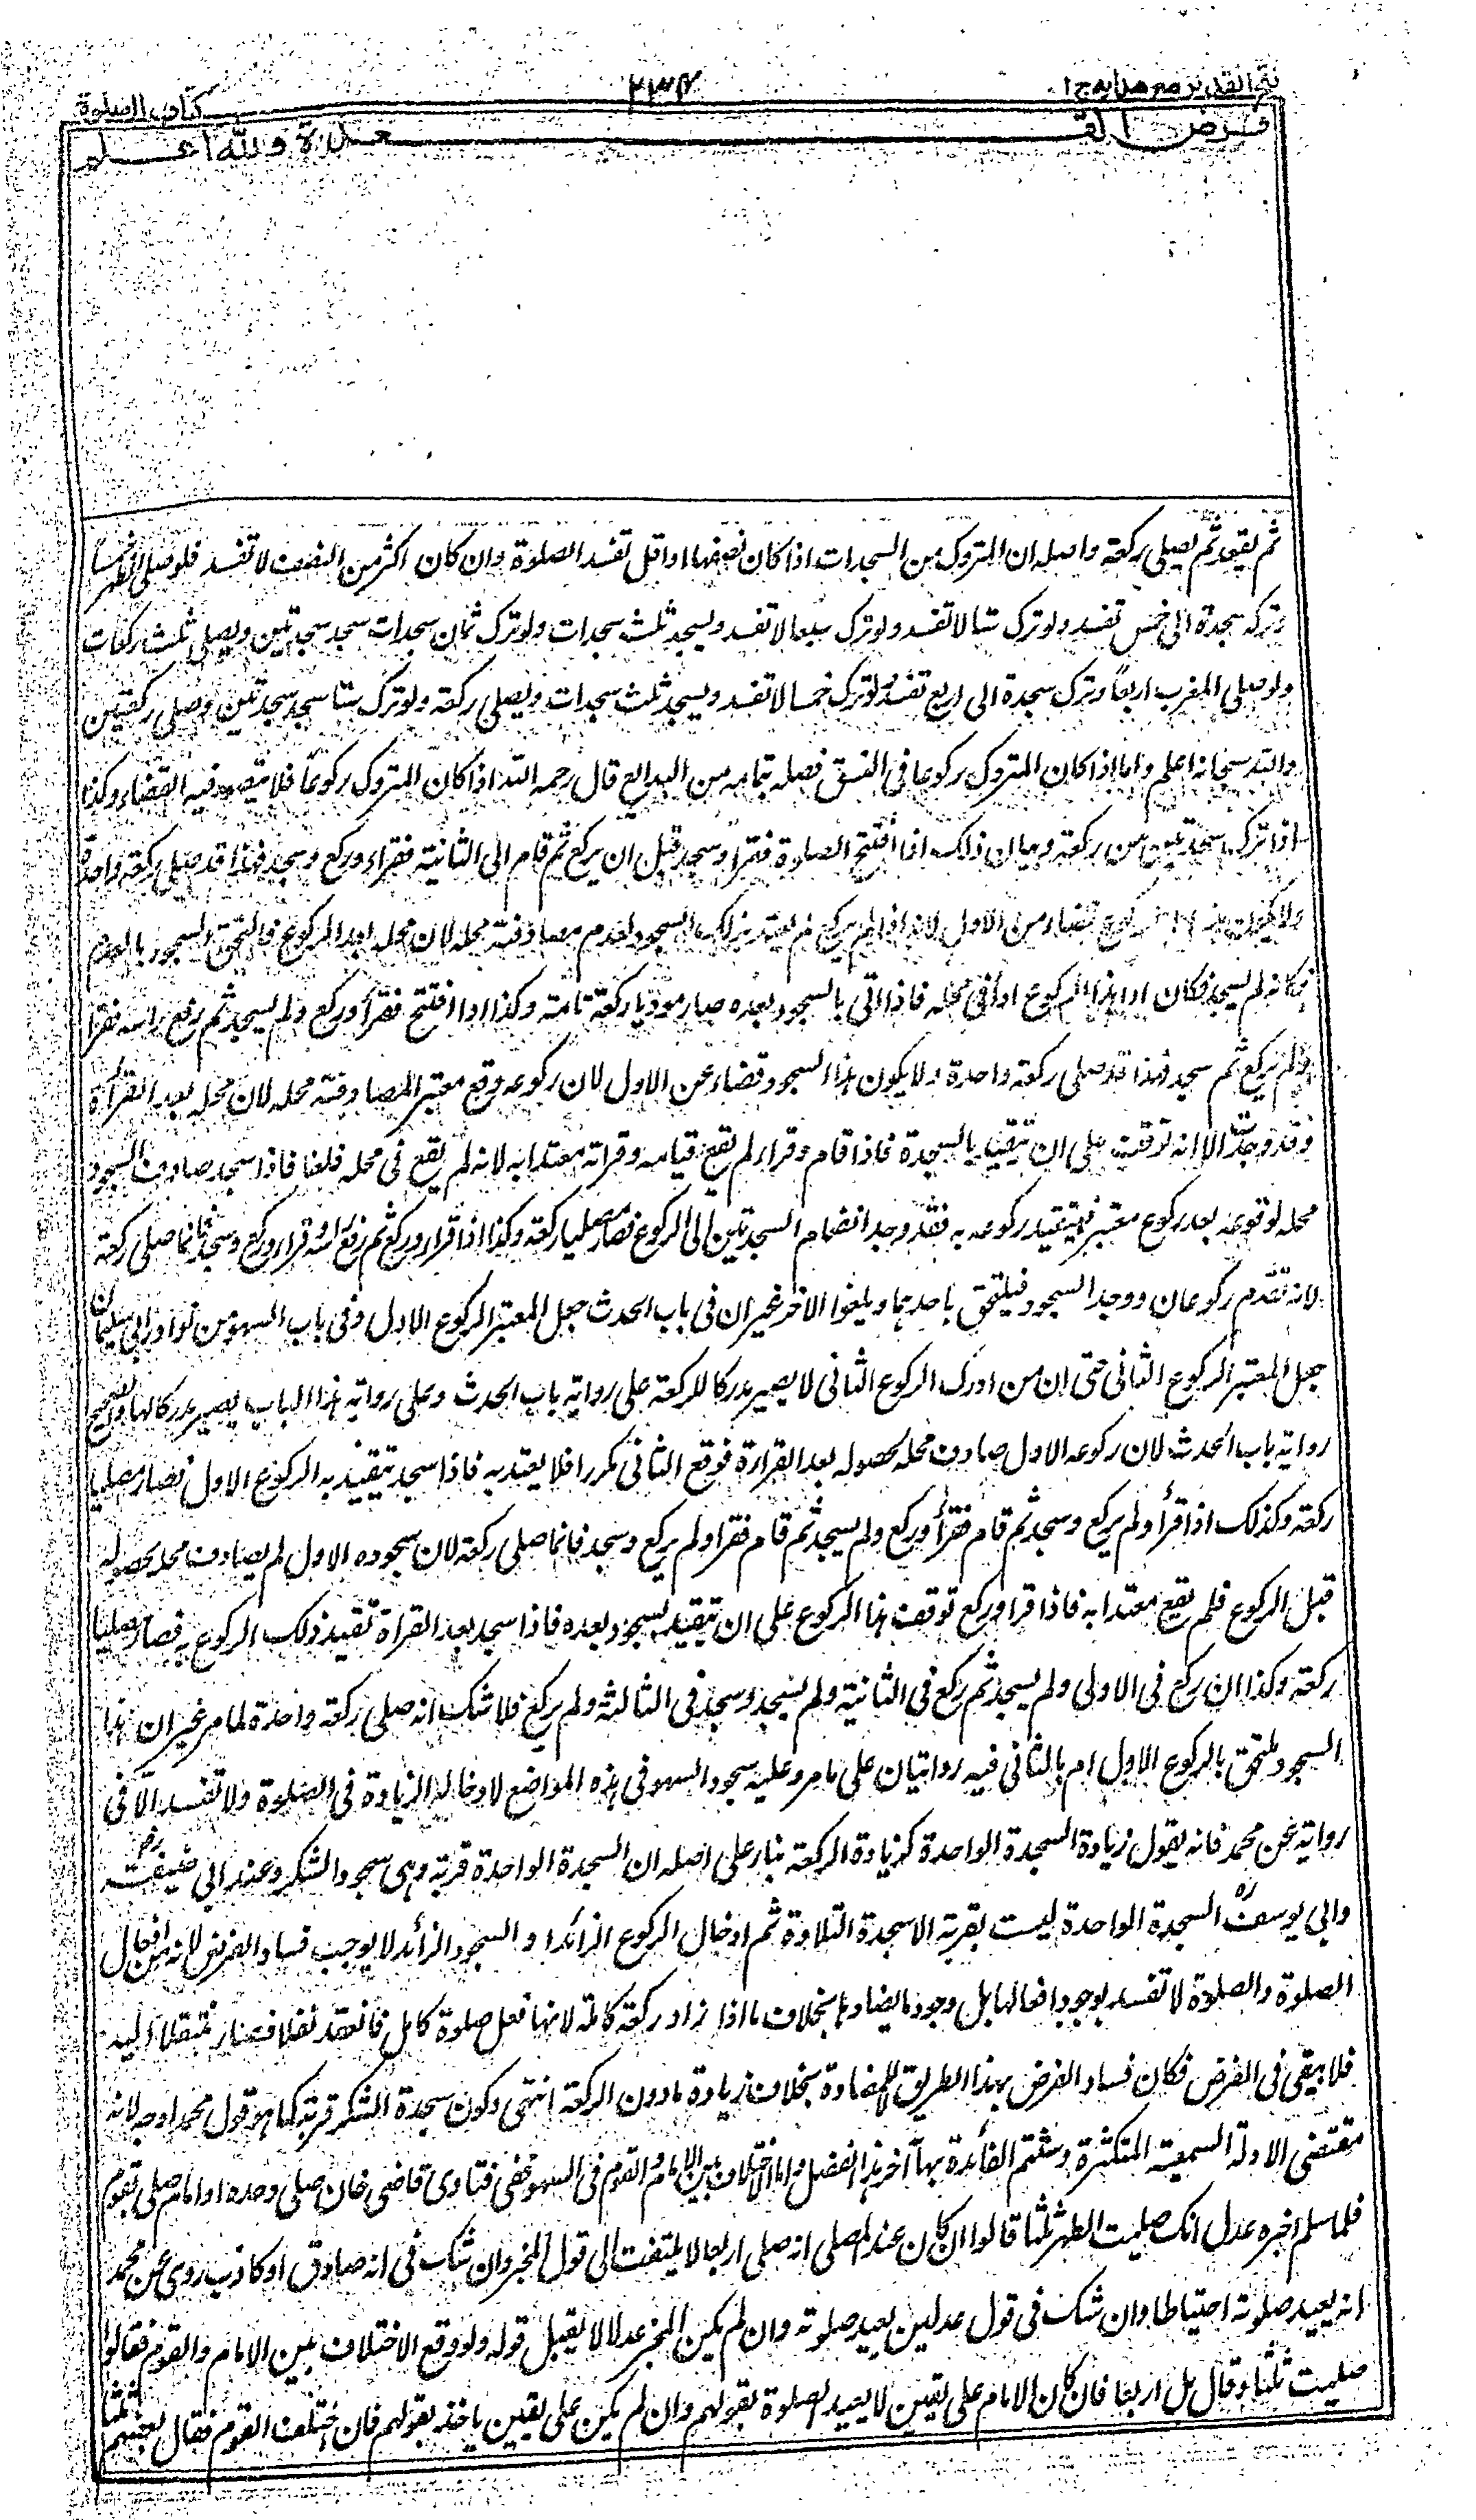 فتح القدير مع هدايه ج ا
٢٣٤
كتاب الصلوة
فرض القعدة والله اعلم
ثم يقعد ثم يصلى ركعة واصله ان المتروك من السجدات اذا كان نصفها او اقل تفسد الصلوة وان كان اكثر من النصف لا تفسد فلو صلى الظهر خمسا
وترك سجدة الى خمس تفسد ولو ترك ستا لا تفسد ولو ترك سبعا لا تفسد ويسجد ثلث سجدات ولو ترك ثمان سجدات سجد سجدتين ويصلى ثلث ركعات
ولو صلى المغرب اربعاً وترك سجدة الى اربع تفسد ولو ترك خمسا لا تفسد ويسجد ثلث سجدات ويصلى ركعة ولو ترك ستا سجد سجدتين ويصلى ركعتين
والله سبحانه اعلم واما اذا كان المتروك ركوعا فى النسق فصله بتمامه من البدائع قال رحمه الله اذا كان المتروك ركوعاً فلا يتصور فيه القضاء وكذا
اذا ترك سجدتين من ركعة وبيان ذلك اذا افتتح الصلوة فقرأ وسجد قبل ان يركع ثم قام الى الثانية فقراء وركع وسجد فهذا قد صلى ركعة واحدة
ولا يكون هذا الركوع قضاء من الاول لانه اذا لم يركع لم يعتد بذلك السجود لعدم مصادفته محله لان محله بعد الركوع فالتحق السجود بالعدم
فكانه لم يسجد فكان اداء هذا الركوع اداء فى محله فاذا اتى بالسجود بعده صار موديا ركعة تامة وكذا اذا افتتح فقرأ وركع ولم يسجد ثم رفع راسه فقرأ
ولم يركع ثم سجد فهذا قد صلى ركعة واحدة ولا يكون هذا السجود قضاء عن الاول لان ركوعه وقع معتبرا لمصادفته محله لان محله بعد القرأة
وقد وجدت الا انه توقف على ان يتقيد بالسجدة فاذا قام وقراء لم يقع قيامه وقراته معتدا به لانه لم يقع فى محله فلغا فاذا سجد صادف السجود
محله لوقوعه بعد ركوع معتبر فيتقيد ركوعه به فقد وجد انضمام السجدتين الى الركوع فصار مصليا ركعة وكذا اذا قراء وركع ثم رفع راسه وقراء وركع وسجد فانما صلى ركعة
لانه تقدم ركوعان ووجد السجود فيلتحق باحدهما ويلغوا الاخر غير ان فى باب الحدث جعل المعتبر الركوع الاول وفى باب السهو من نوادر ابى سليمان
جعل المعتبر الركوع الثانى حتى ان من ادرك الركوع الثانى لا يصير مدركا للركعة على رواية باب الحدث وعلى رواية هذا الباب يصير مدركا لها والصحيح
رواية باب الحدث لان ركوعه الاول صادف محله لحصوله بعد القراءة فوقع الثانى مكررا فلا يعتد به فاذا سجد يتقيد به الركوع الاول فصار مصليا
ركعة وكذلك اذا قرأ ولم يركع وسجد ثم قام فقرأ وركع ولم يسجد ثم قام فقرا ولم يركع وسجد فانما صلى ركعة لان سجوده الاول لم يصادف محله لحصوله
قبل الركوع فلم يقع معتدا به فاذا قرا وركع توقف هذا الركوع على ان يتقيد بسجود بعده فاذا سجد بعد القراة تقيد ذلك الركوع به فصار مصليا
ركعة وكذا ان ركع فى الاولى ولم يسجد ثم ركع فى الثانية ولم يسجد وسجد فى الثالثة ولم يركع فلا شك انه صلى ركعة واحدة لما مر غير ان هذا
السجود يلتحق بالركوع الاول ام بالثانى فيه روايتان على ما مر وعليه سجود السهو فى هذه المواضع لادخاله الزيادة فى الصلوة ولا تفسد الا فى
رواية عن محمد فانه يقول زيادة السجدة الواحدة كزيادة الركعة بناء على اصله ان السجدة الواحدة قربة وهى سجود الشكر وعند ابى حنيفة رض
وابى يوسف ره السجدة الواحدة ليست بقربة الا سجدة التلاوة ثم ادخال الركوع الزائد او السجود الزائد لا يوجب فساد الفرض لانه من افعال
الصلوة والصلوة لا تفسد بوجود افعالها بل وجود ما يضادها بخلاف ما اذا زاد ركعة كاملة لانها فعل صلوة كامل فانعقد نفلا فصار منتقلا اليه
فلا يبقى فى الفرض فكان فساد الفرض بهذا الطريق للمضادة بخلاف زيادة ما دون الركعة انتهى وكون سجدة الشكر قربة كما هو قول محمد اوجه لانه
مقتضى الادلة السمعية المتكثرة وستتم الفائدة بها آخر هذا الفصل واما الاختلاف بين الامام والقوم فى السهو ففى فتاوى قاضى خان صلى وحده او امام صلى بقوم
فلما سلم اخبره عدل انك صليت الظهر ثلثا قالوا ان كان عند المصلى انه صلى اربعا لا يلتفت الى قول المخبر وان شك فى انه صادق او كاذب روى عن محمد
انه يعيد صلوته احتياطا وان شك فى قول عدلين يعيد صلوته وان لم يكن المخبر عدلا لا يقبل قوله ولو وقع الاختلاف بين الامام والقوم فقالوا
صليت ثلثا وقال بل اربعا فان كان الامام على يقين لا يعيد الصلوة بقولهم وان لم يكن على يقين ياخذ بقولهم فان اختلف القوم فقال بعضهم ثلثا